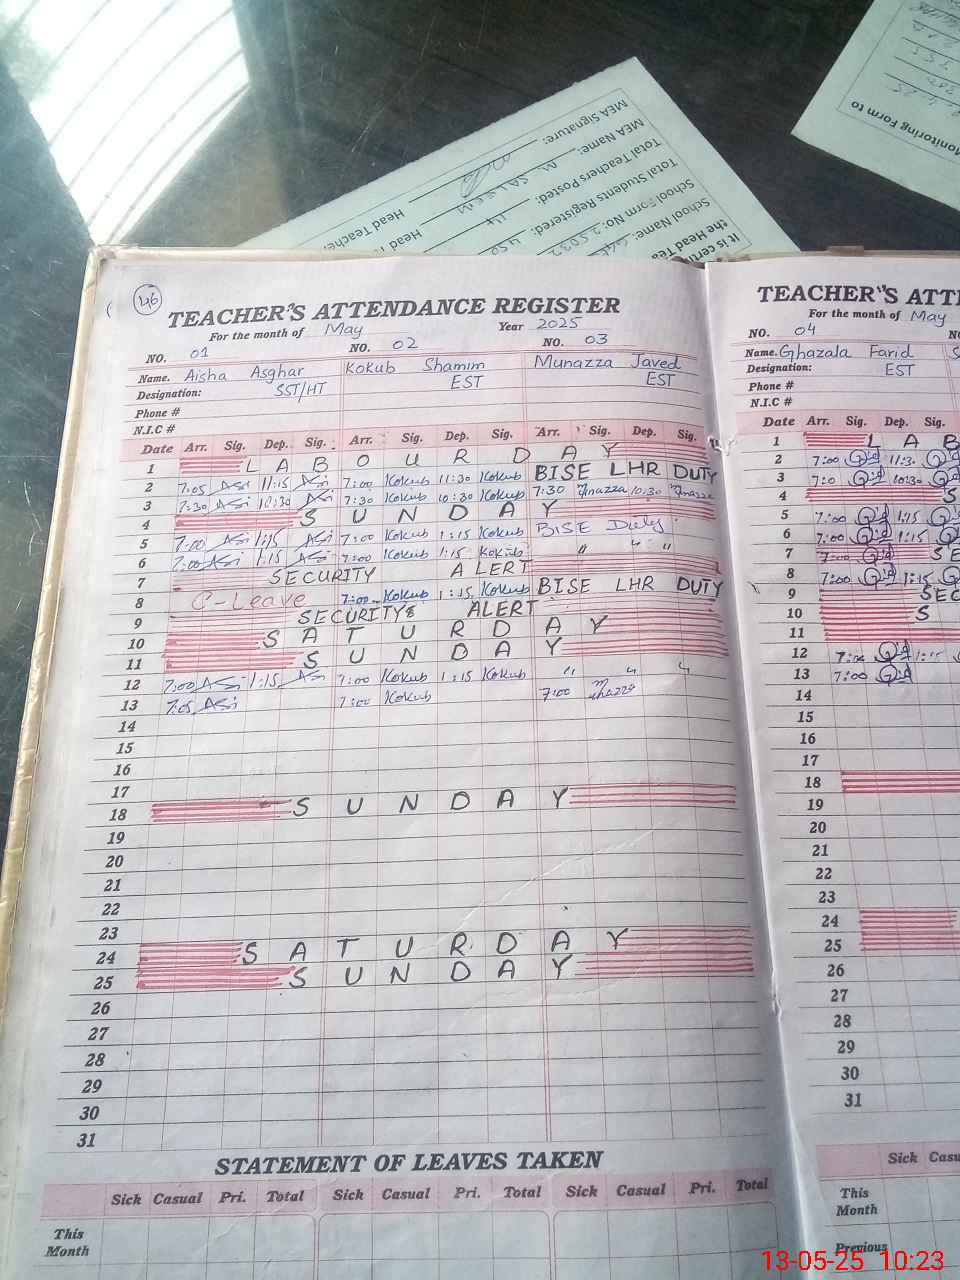 MEA Signature:
MEA Name: M SALEEM
Total Teachers Posted: 14
Total Students Registered: 450
School Form No:
School Name:
the Head Tea
It is certi
Head Teache
Monitoring Form to
46
TEACHER'S ATTENDANCE REGISTER
For the month of May Year 2025
NO. 01 NO. 02 NO. 03
Name. Aisha Asghar Kokub Shamim Munazza Javed
Designation: SST/HT EST EST
Phone #
N.I.C #
Date Arr. Sig. Dep. Sig. Arr. Sig. Dep. Sig. Arr. Sig. Dep. Sig.
1 LABOUR DAY
2 7:05 Asi 11:15 Asi 7:00 Kokub 11:30 Kokub BISE LHR DUTY
3 7:30 Asi 10:30 Asi 7:30 Kokub 10:30 Kokub 7:30 10:30
4 SUNDAY
5 7:00 Asi 1:15 Asi 7:00 Kokub 1:15 Kokub BISE Duty
6 7:00 Asi 1:15 Asi 7:00 Kokub 1:15 Kokub " " "
7 SECURITY ALERT
8 C-Leave 7:00 Kokub 1:15 Kokub BISE LHR DUTY
9 SECURITY ALERT
10 SATURDAY
11 SUNDAY
12 7:00 Asi 1:15 Asi 7:00 Kokub 1:15 Kokub " " "
13 7:05 Asi 7:00 Kokub 7:00
14
15
16
17
18 SUNDAY
19
20
21
22
23
24 SATURDAY
25 SUNDAY
26
27
28
29
30
31
STATEMENT OF LEAVES TAKEN
Sick Casual Pri. Total Sick Casual Pri. Total Sick Casual Pri. Total
This
Month
TEACHER'S ATT
For the month of May
NO. 04
Name. Ghazala Farid
Designation: EST
Phone #
N.I.C #
Date Arr. Sig. Dep. Sig.
1 L A B
2 7:00 11:30
3 7:0 10:30
4 S
5 7:00 1:15
6 7:00 1:15
7 7:00 SE
8 7:00 1:15
9 SEC
10 S
11
12 7:00 1:15
13 7:00
14
15
16
17
18
19
20
21
22
23
24
25
26
27
28
29
30
31
Sick Casu
This
Month
Previous
13-05-25 10:23